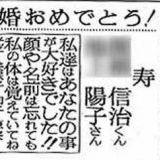 婚おめでとう!
寿
信治くん
陽子さん
私達はあなたの事
が大好きでした!!
顔や名前は忘れても
私の体は覚えていてね